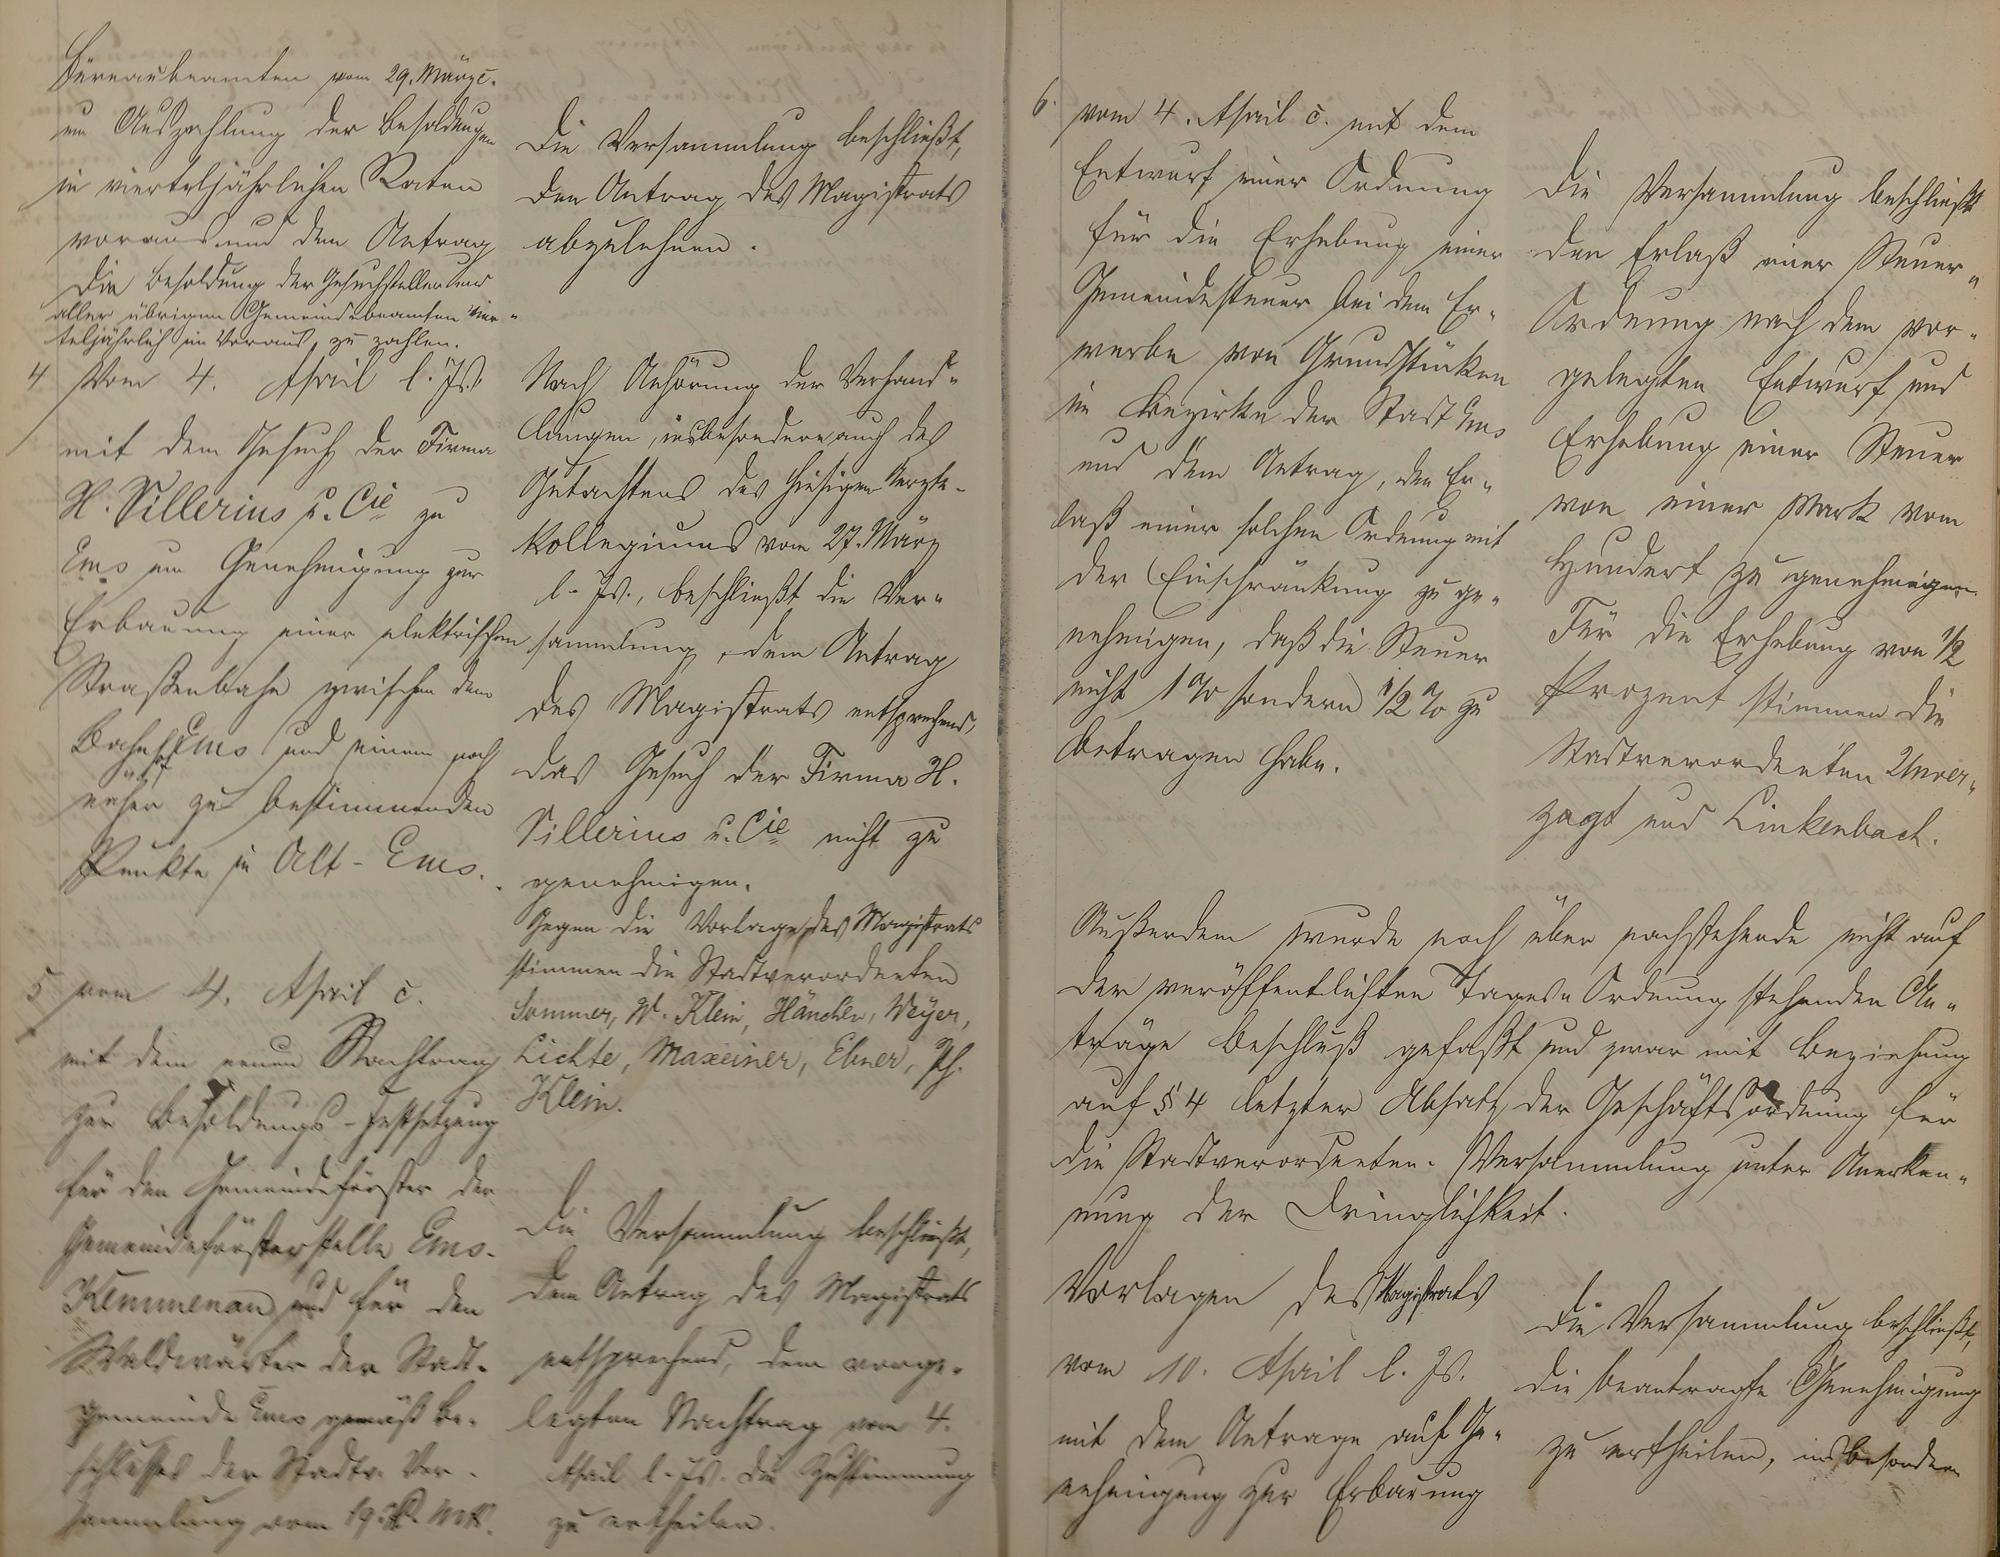 Büreaubeamten vom 29. März c.
um Auszahlung der Besoldungen
in vierteljährlichen Raten
voraus und dem Antrag
die Besoldung der Gesuchsteller und
aller übrigen Gemeindebeamten vier-
teljährlich im Voraus zu zahlen.
Die Versammlung beschließt,
den Antrag des Magistrats
abzulehnen.
4 Vom 4. April l. Js.
mit dem Gesuch der Firma
H. Sillerius u. Cie zu
Ems um Genehmigung zur
Erbauung einer elektrischen
Straßenbahn zwischen dem
Bahnhof Ems und einem noch
näher zu bestimmenden
Punkte in Alt-Ems.
Nach Anhörung der Verhand-
lungen, insbesondere auch des
Gutachtens des hiesigen Aerzte-
Kollegiums vom 27. März
l. Js., beschließt die Ver-
sammlung, dem Antrag
des Magistrats entsprechend,
das Gesuch der Firma H.
Sillerius u. Cie nicht zu
genehmigen.
Gegen die Vorlage des Magistrats
stimmen die Stadtverordneten
Sommer, W. Klein, Hänchen, Weyer,
Lichte, Maxeiner, Ebner, Ph.
Klein.
5 vom 4. April c.
mit dem neuen Nachtrag
zur Besoldungs-Festsetzung
für den Gemeindeförster der
Gemeindeförsterstelle Ems-
Kemmenau und für den
Waldwärter der Stadt-
gemeinde Ems gemäß Be-
schlusses der Stadtv. Ver-
sammlung vom 19.
Die Versammlung beschließt,
dem Antrag des Magistrats
entsprechend, dem vorge-
legten Nachtrag vom 4.
April l. Js. die Zustimmung
zu ertheilen.
6. vom 4. April c. mit dem
Entwurf einer Ordnung
für die Erhebung einer
Gemeindesteuer bei dem Er-
werbe von Grundstücken
im Bezirke der Stadt Ems
und dem Antrag, den Er-
laß einer solchen Ordnung mit
der Einschränkung zu ge-
nehmigen, daß die Steuer
nicht 1% sondern 1/2% zu
betragen habe.
Die Versammlung beschließt
den Erlaß einer Steuer-
Ordnung nach dem vor-
gelegten Entwurf und
Erhebung einer Steuer
von einer Mark vom
Hundert zu genehmigen.
Für die Erhebung von 1/2
Prozent stimmen die
Stadtverordneten Unver-
zagt und Linkenbach.
Außerdem wurde noch über nachstehende nicht auf
der veröffentlichten Tages-Ordnung stehenden An-
träge Beschluß gefaßt und zwar mit Beziehung
auf § 4 letzter Absatz der Geschäftsordnung für
die Stadtverordneten-Versammlung unter Anerken-
nung der Dringlichkeit.
Vorlagen des Magistrats
vom 10. April l. Js.
mit dem Antrage auf Ge-
nehmigung zur Erbauung
Die Versammlung beschließt,
die beantragte Genehmigung
zu ertheilen, insbesondere